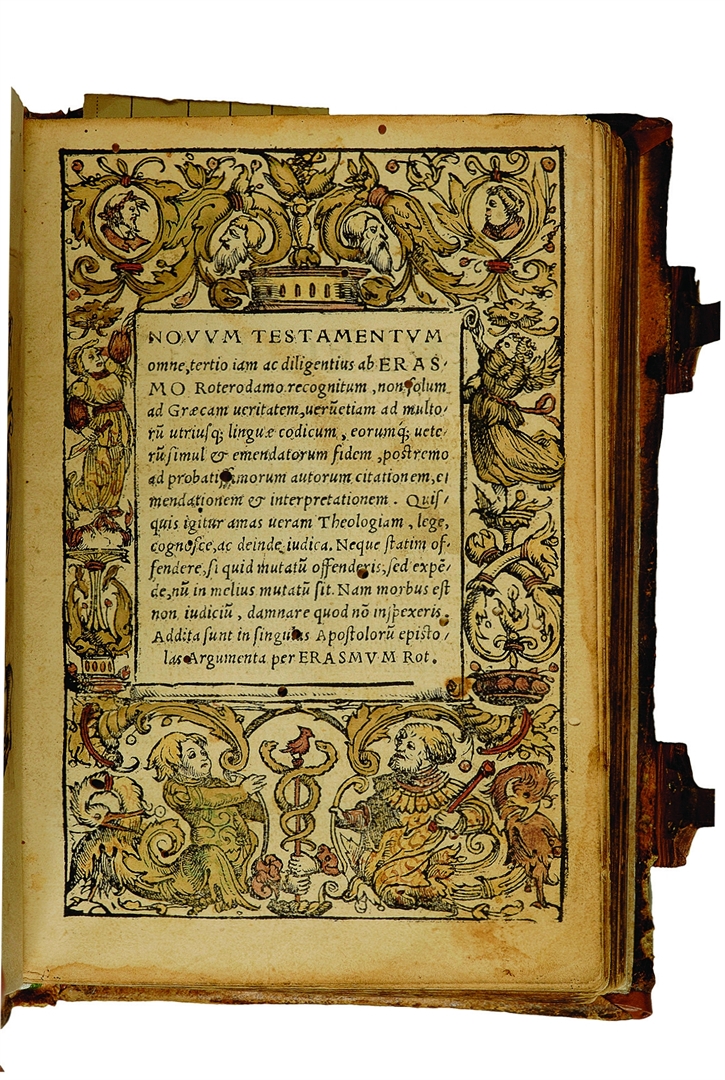 NOVVM TESTAMENTVM
omne, tertio iam ac diligentius ab ERAS-
MO Roterodamo recognitum, non solum
ad Græcam ueritatem, uerũetiam ad multo-
rũ utriusq; linguæ codicum, eorumq́; uete-
rũ simul & emendatorum fidem, postremo
ad probatissimorum autorum citationem, e-
mendationem & interpretationem. Quis-
quis igitur amas ueram Theologiam, lege,
cognosce, ac deinde iudica. Neque statim of-
fendere, si quid mutatũ offenderis, sed expẽ-
de, nũ in melius mutatũ sit. Nam morbus est
non iudiciũ, damnare quod nõ inspexeris.
Addita sunt in singulas Apostolorũ episto-
las Argumenta per ERASMVM Rot.